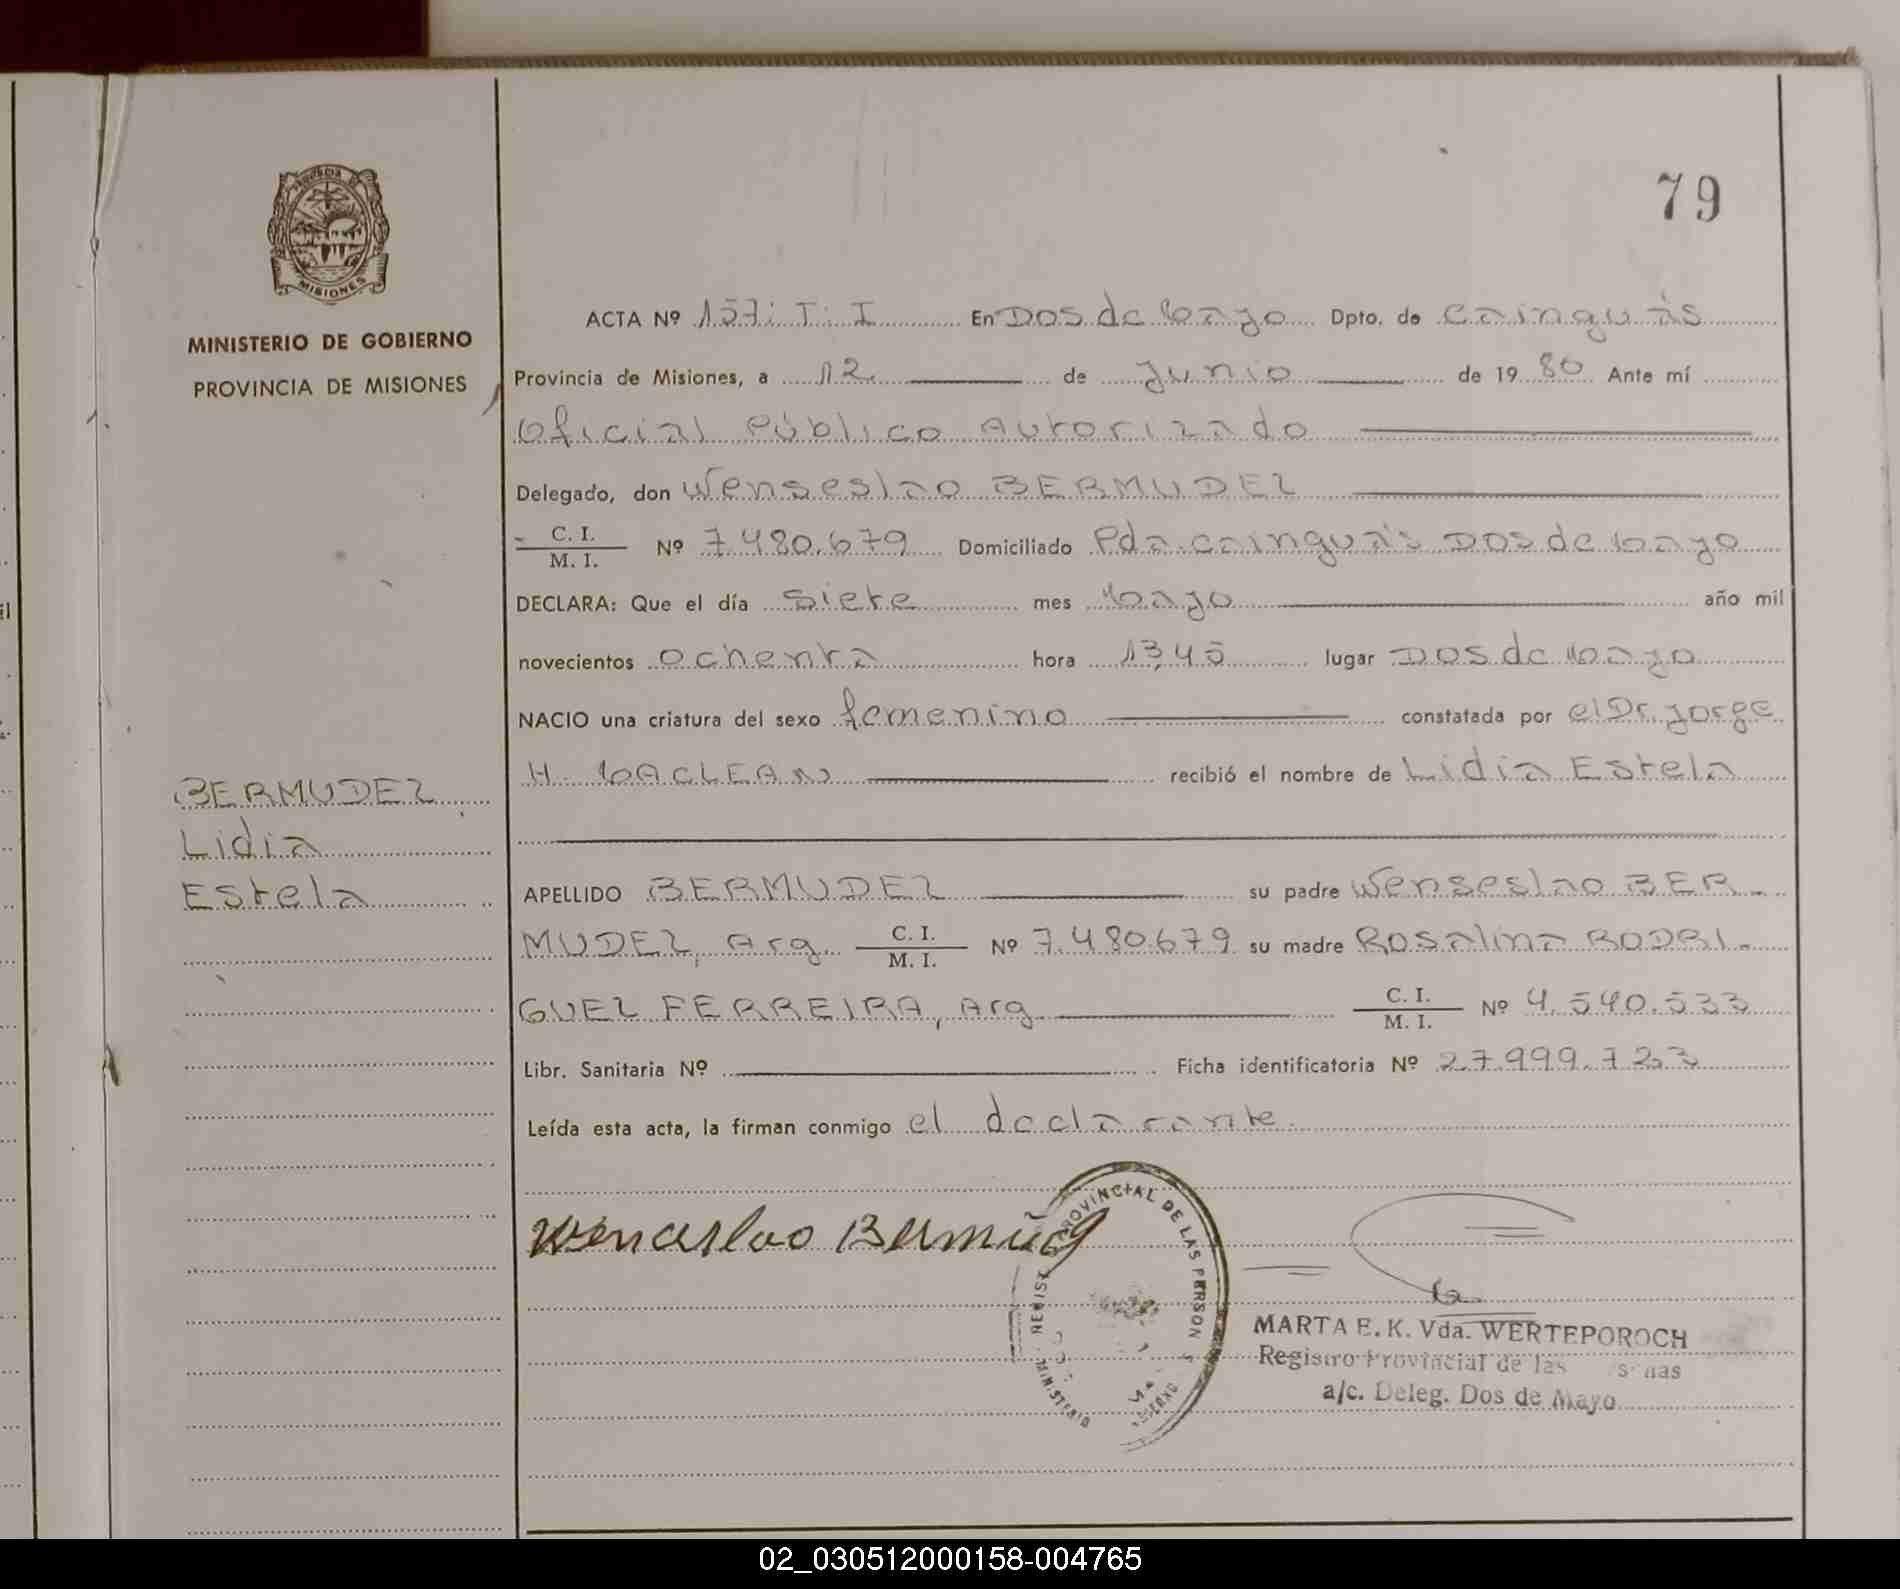 79
PROVINCIA DE
MISIONES
MINISTERIO DE GOBIERNO
PROVINCIA DE MISIONES
BERMUDEZ
Lidia
Estela
ACTA Nº 157: T: I En Dos de Mayo Dpto. de Cainguás
Provincia de Misiones, a 12 de Junio de 1980 Ante mí
Oficial Público Autorizado
Delegado, don Wenseslao BERMUDEZ
C. I.
M. I. Nº 7.480.679 Domiciliado Pda. Cainguás Dos de Mayo
DECLARA: Que el día siete mes Mayo año mil
novecientos ochenta hora 13,45 lugar Dos de Mayo
NACIO una criatura del sexo femenino constatada por el Dr. Jorge
H. MACLEAN recibió el nombre de Lidia Estela
APELLIDO BERMUDEZ su padre Wenseslao BER-
MUDEZ, Arg. C. I.
M. I. Nº 7.480.679 su madre Rosalina RODRI-
GUEZ FERREIRA, Arg C. I.
M. I. Nº 4.540.533
Libr. Sanitaria Nº Ficha identificatoria Nº 27.999.723
Leída esta acta, la firman conmigo el declarante
Wenceslao Bermudez
PROVINCIAL DE LAS PERSON
MINISTERIO
MARTA E. K. Vda. WERTEPOROCH
Registro Provincial de las
a/c. Deleg. Dos de Mayo
02_030512000158-004765